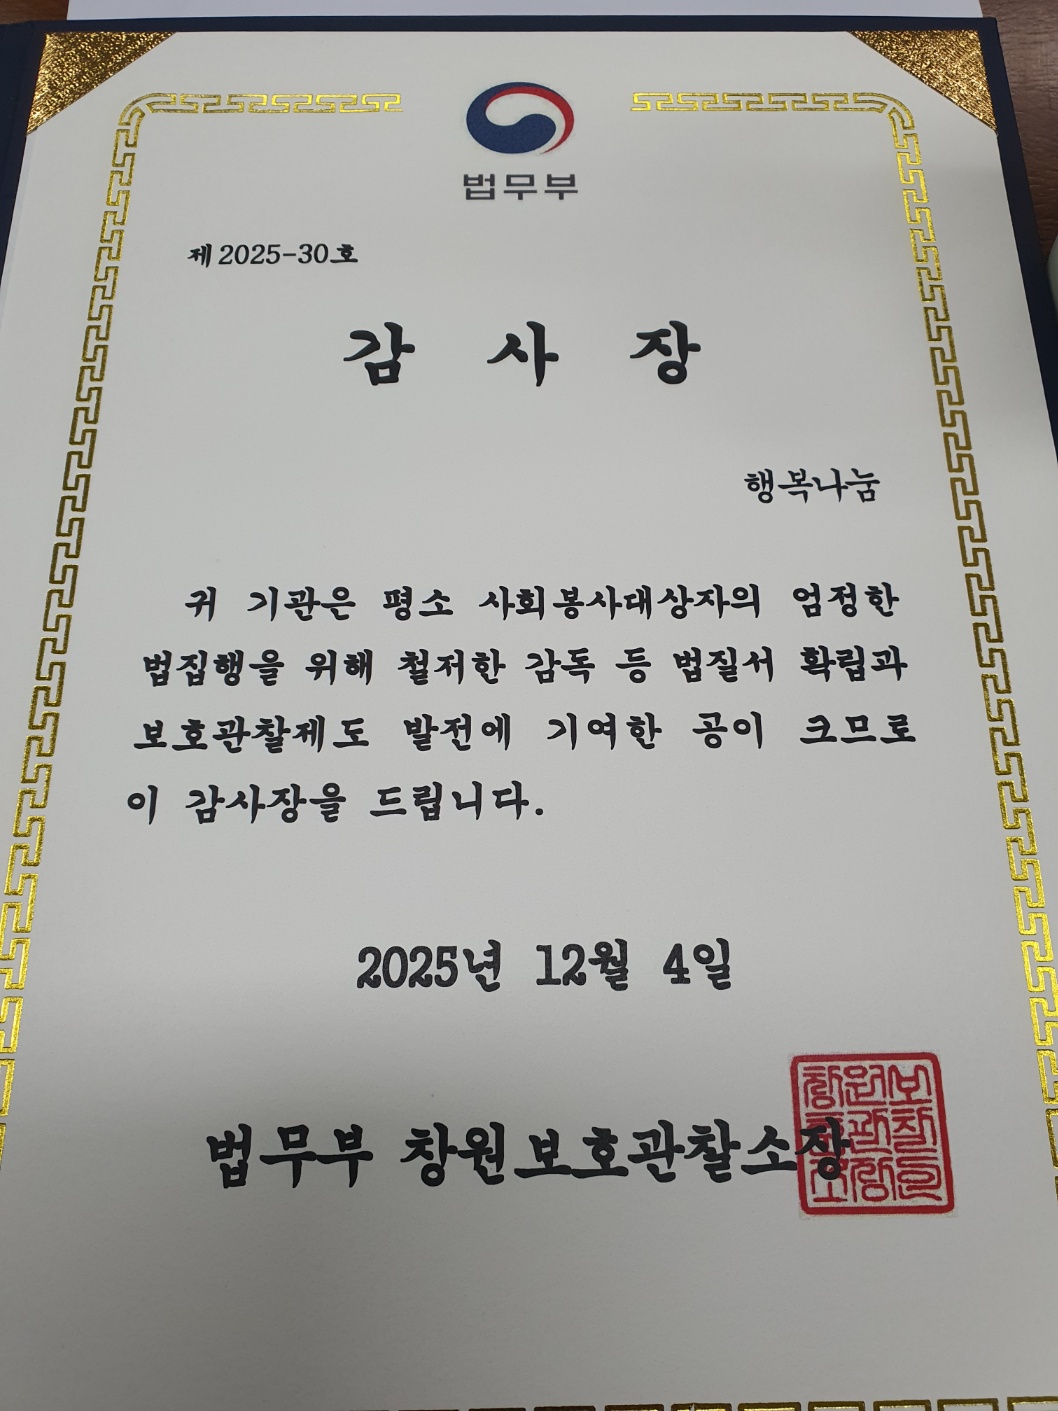 법무부
제2025-30호
감 사 장
행복나눔
귀 기관은 평소 사회봉사대상자의 엄정한
법집행을 위해 철저한 감독 등 법질서 확립과
보호관찰제도 발전에 기여한 공이 크므로
이 감사장을 드립니다.
2025년 12월 4일
법무부 창원보호관찰소장